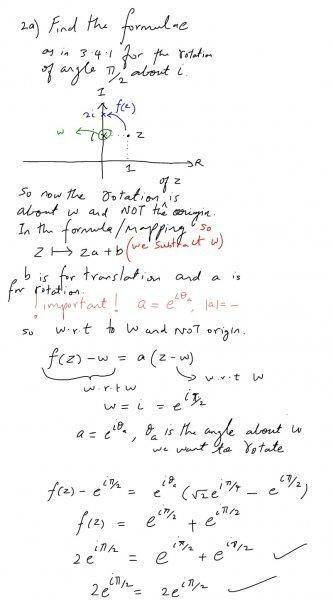 2a) Find the formulae
as in 3.4.1 for the rotation
of angle π/2 about i.
I
2i f(z)
w i z
1 R
So now the rotation of z is
about w and NOT the origin.
In the formula/mapping so
z ↦ za+b (we subtract w)
b is for translation and a is
for rotation.
! important! a = e^{iθ_a}, |a|=–
so w.r.t to w and NOT origin.
f(z) - w = a(z-w)
w.r.t w w.r.t w
w = i = e^{iπ/2}
a = e^{iθ_a}, θ_a is the angle about w
we want to rotate
f(z) - e^{iπ/2} = e^{iθ_a}(√2e^{iπ/4} - e^{iπ/2})
f(z) = e^{iπ/2} + e^{iπ/2}
2e^{iπ/2} = e^{iπ/2} + e^{iπ/2} ✓
2e^{iπ/2} = 2e^{iπ/2} ✓